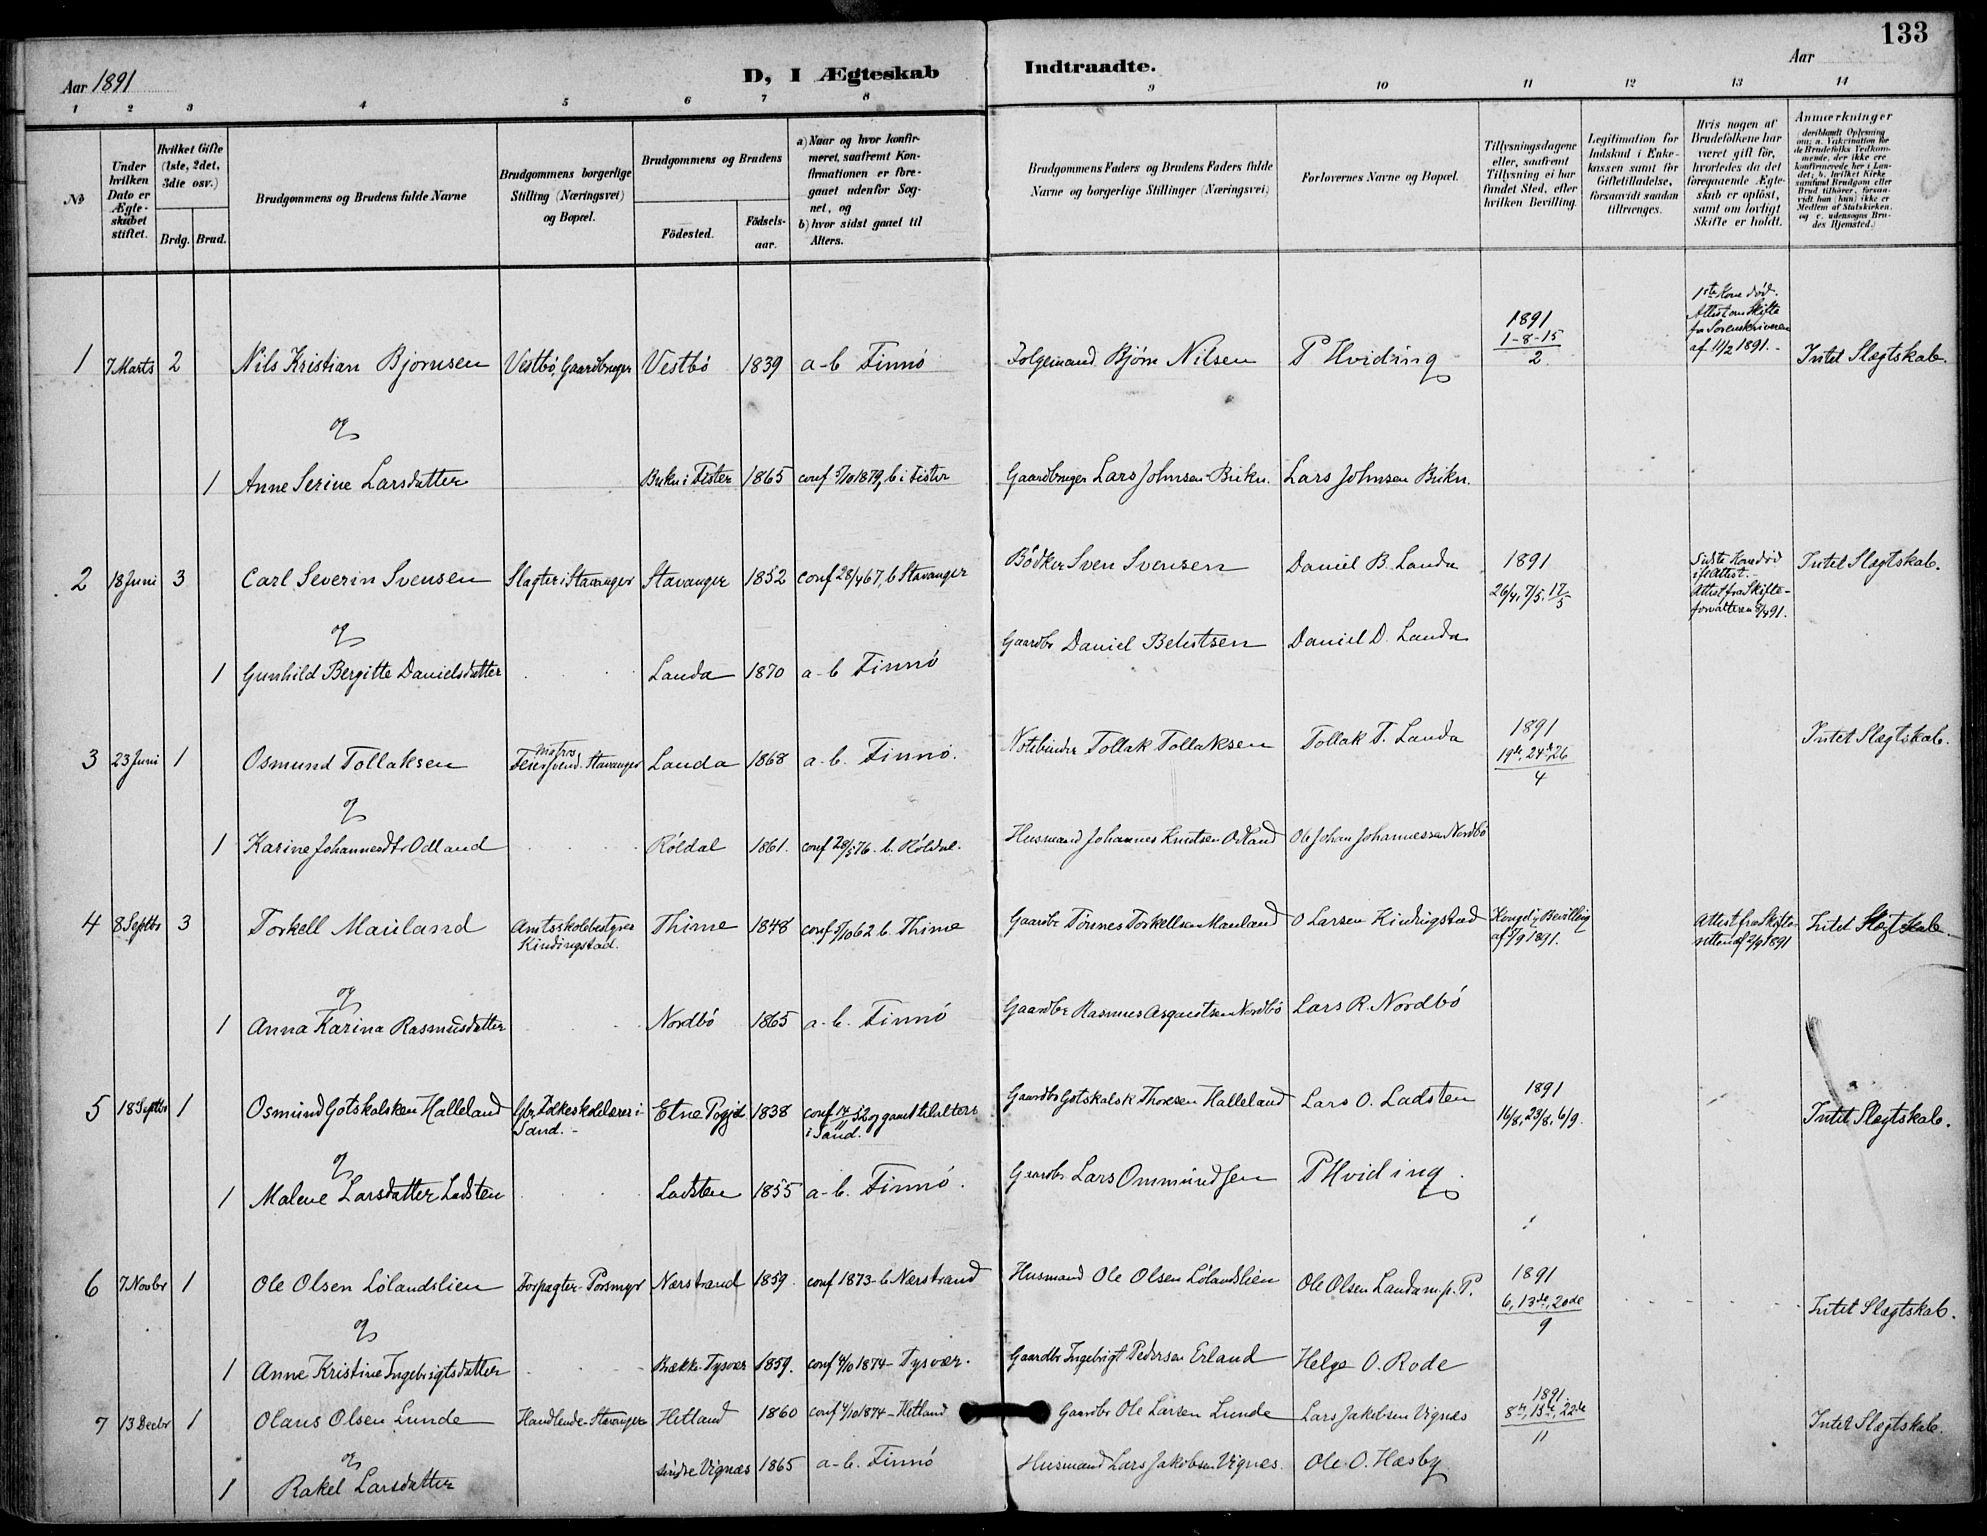 133
Aar 1891
D, I Ægteskab Indtraadte.
Aar
1 2 3 4 5 6 7 8 9 10 11 12 13 14
№
Under hvilken Dato er Ægteskabet stiftet.
Hvilket Gifte (1ste, 2det, 3die osv.)
Brdg. Brud.
Brudgommens og Brudens fulde Navne
Brudgommens borgerlige Stilling (Næringsvei) og Bopæl.
Brudgommens og Brudens
Födested. Födsels-aar.
a) Naar og hvor konfirmeret, saafremt Konfirmationen er foregaaet udenfor Sognet, og
b) hvor sidst gaaet til Alters.
Brudgommens Faders og Brudens Faders fulde Navne og borgerlige Stillinger (Næringsvei)
Forlovernes Navne og Bopæl.
Tillysningsdagene eller, saafremt Tillysning ei har fundet Sted, efter hvilken Bevilling.
Legitimation for Indskud i Enkekassen samt for Giftetilladelse, forsaavidt saadan tiltrænges.
Hvis nogen af Brudefolkene har været gift för, hvorledes da det foregaaende Ægteskab er oplöst, samt om lovligt Skifte er holdt.
Anmærkninger
(deriblandt Oplysning om: a. Vaccination for de Brudefolks Vedkommende, der ikke ere konfirmerede her i Landet; b. hvilket Kirkesamfund Brudgom eller Brud tilhører, forsaavidt han (hun) ikke er Medlem af Statskirken. og c. udensogns Brudes Hjemsted.)
1 7 Marts 2 Nils Kristian Bjørnsen Vestbö, Gaardbruger Vestbö 1839 a-b Finnö Folgemand Bjørn Nilsen P Hviding 1891 1-8-15/2. 1ste Kone död. Attest om Skifte fra Sorenskriveren af 11/2 1891. Intet Slægtskab.
og
1 Anne Serine Larsdatter i Fister 1865 conf 5/10 1879, b i Fister Gaardbruger Lars Johnsen Lars Johnsen
2 18 Juni 3 Carl Severin Svensen Slagter i Stavanger Stavanger 1852 conf 28/4 67, b Stavanger Bödker Sven Svensen Daniel B. Landa 1891 26/4, 7/5, 17/5 Sidste Kone död Attest. Attest fra Skifteforvalteren Intet Slægtskab.
og
1 Gunhild Bergitte Danielsdatter Landa 1870 a-b Finnö Gaardbr Daniel Daniel D. Landa
3 23 Juni 1 Osmund Tollaksen Feiersvend Stavanger Landa 1868 a-b. Finnö. Notebinder Tollak Tollaksen Tollak T. Landa 1891 19de, 24de, 26/4 Intet Slægtskab.
og
1 Karine Johannesdtr Odland Röldal 1861. conf 28/5 76. b. Röldal. Husmand Johannes Knutsen Odland Ole Johan Johannessen Nordbö
4 8 Septbr 3 Torkell Mauland Amtsskolebestyrer Kindingstad. Thime 1848 conf 5/10 62 b. Thime Gaardbr Tönnes Torkellsen Mauland O Larsen Kindingstad Kongelig Bevilling af 5/9 1891. Attest fra Skifteretten af 2/9 1891 Intet Slægtskab.
og
1 Anna Karina Rasmusdatter Nordbö 1865 a-b. Finnö Gaardbr Rasmus Asgautsen Nordbö Lars R. Nordbö
5 18 Septbr 1 Osmund Gotskalksken Halleland Gbr. Folkeskolelærer i Sand. Etne 1838 conf 14/11 52 og gaaet til alters i Sand. Gaardbr Gotskalsk Thoresen Halleland Lars O. Ladsten 1891 16/8, 23/8, 6/9. Intet Slægtskab.
og
1 Malene Larsdatter Ladsten Ladsten 1855 a-b. Finnö. Gaardbr Lars Ommundsen P Hviding.
6 7 Novbr 1 Ole Olsen Lölandslien Forpagter Porsmyr Nærstrand 1859. conf 1873-b Nærstrand Husmand Ole Olsen Lölandslien Ole Olsen Landa 1891 6, 13de, 20de/9 Intet Slægtskab.
og
1 Anne Kristine Ingebrigtsdatter Brække Tysvær 1859. conf 4/10 1874 - Tysvær. Gaardbr Ingebrigt Pedersen Erland Helge O. Rode
7 13 Decbr 1 Olaus Olsen Lunde Handlende Stavanger Hetland 1860 conf 4/10 1874 - Hetland Gaardbr Ole Larsen Lunde Lars Jakobsen Vignæs 1891 8de, 15de, 22de/11 Intet Slægtskab.
og
1 Rakel Larsdatter Vignæs 1865 a-b. Finnö Husmand Lars Jakobsen Vignes. Ole O. Hæsby